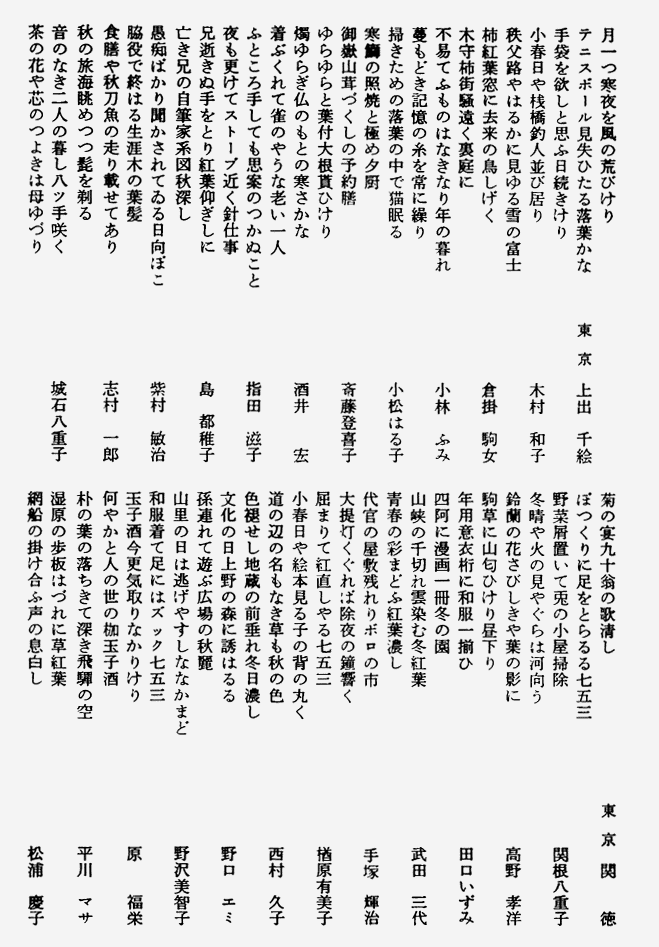 月一つ寒夜を風の荒びけり
テニスボール見失ひたる落葉かな　東京　上出　千絵
手袋を欲しと思ふ日続きけり
小春日や桟橋釣人並び居り　木村　和子
秩父路やはるかに見ゆる雪の富士
柿紅葉窓に去来の鳥しげく　倉掛　駒女
木守柿街騒遠く裏庭に
不易てふものはなきなり年の暮れ　小林　ふみ
蔓もどき記憶の糸を常に繰り
掃きための落葉の中で猫眠る　小松はる子
寒鰤の照焼と極め夕厨
御嶽山茸づくしの予約膳　斎藤登喜子
ゆらゆらと葉付大根貰ひけり
燭ゆらぎ仏のもとの寒さかな　酒井　宏
着ぶくれて雀のやうな老い一人
ふところ手しても思案のつかぬこと　指田　滋子
夜も更けてストーブ近く針仕事
兄逝きぬ手をとり紅葉仰ぎしに　島　都稚子
亡き兄の自筆家系図秋深し
愚痴ばかり聞かされてゐる日向ぼこ　紫村　敏治
脇役で終はる生涯木の葉髪
食膳や秋刀魚の走り載せてあり　志村　一郎
秋の旅海眺めつつ髭を剃る
音のなき二人の暮し八ツ手咲く　城石八重子
茶の花や芯のつよきは母ゆづり
菊の宴九十翁の歌清し　東京　関　徳
ぽつくりに足をとらるる七五三
野菜屑置いて兎の小屋掃除　関根八重子
冬晴や火の見やぐらは河向う
鈴蘭の花さびしきや葉の影に　高野　孝洋
駒草に山匂ひけり昼下り
年用意衣桁に和服一揃ひ　田口いずみ
四阿に漫画一冊冬の園
山峡の千切れ雲染む冬紅葉　武田　三代
青春の彩まどふ紅葉濃し
代官の屋敷残れりボロの市　手塚　輝治
大提灯くぐれば除夜の鐘響く
屈まりて紅直しやる七五三　楢原有美子
小春日や絵本見る子の背の丸く
道の辺の名もなき草も秋の色　西村　久子
色褪せし地蔵の前垂れ冬日濃し
文化の日上野の森に誘はるる　野口　エミ
孫連れて遊ぶ広場の秋麗
山里の日は逃げやすしななかまど　野沢美智子
和服着て足にはズック七五三
玉子酒今更気取りなかりけり　原　福栄
何やかと人の世の枷玉子酒
朴の葉の落ちきて深き飛騨の空　平川　マサ
湿原の歩板はづれに草紅葉
網船の掛け合ふ声の息白し　松浦　慶子